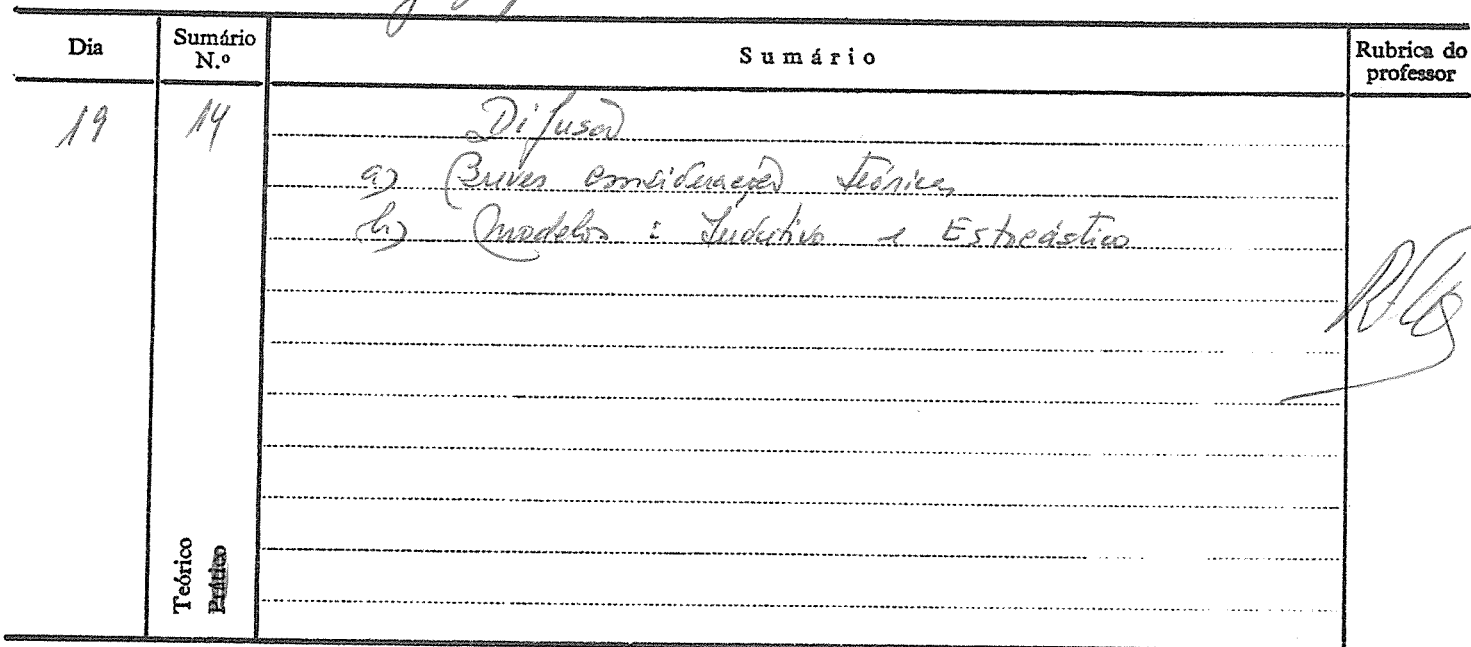 Dia Sumário N.º Sumário Rubrica do professor
19 14 Difusão
a) Breves considerações teóricas
b) Modelos : Indutivo e Estocástico
Teórico
Prático